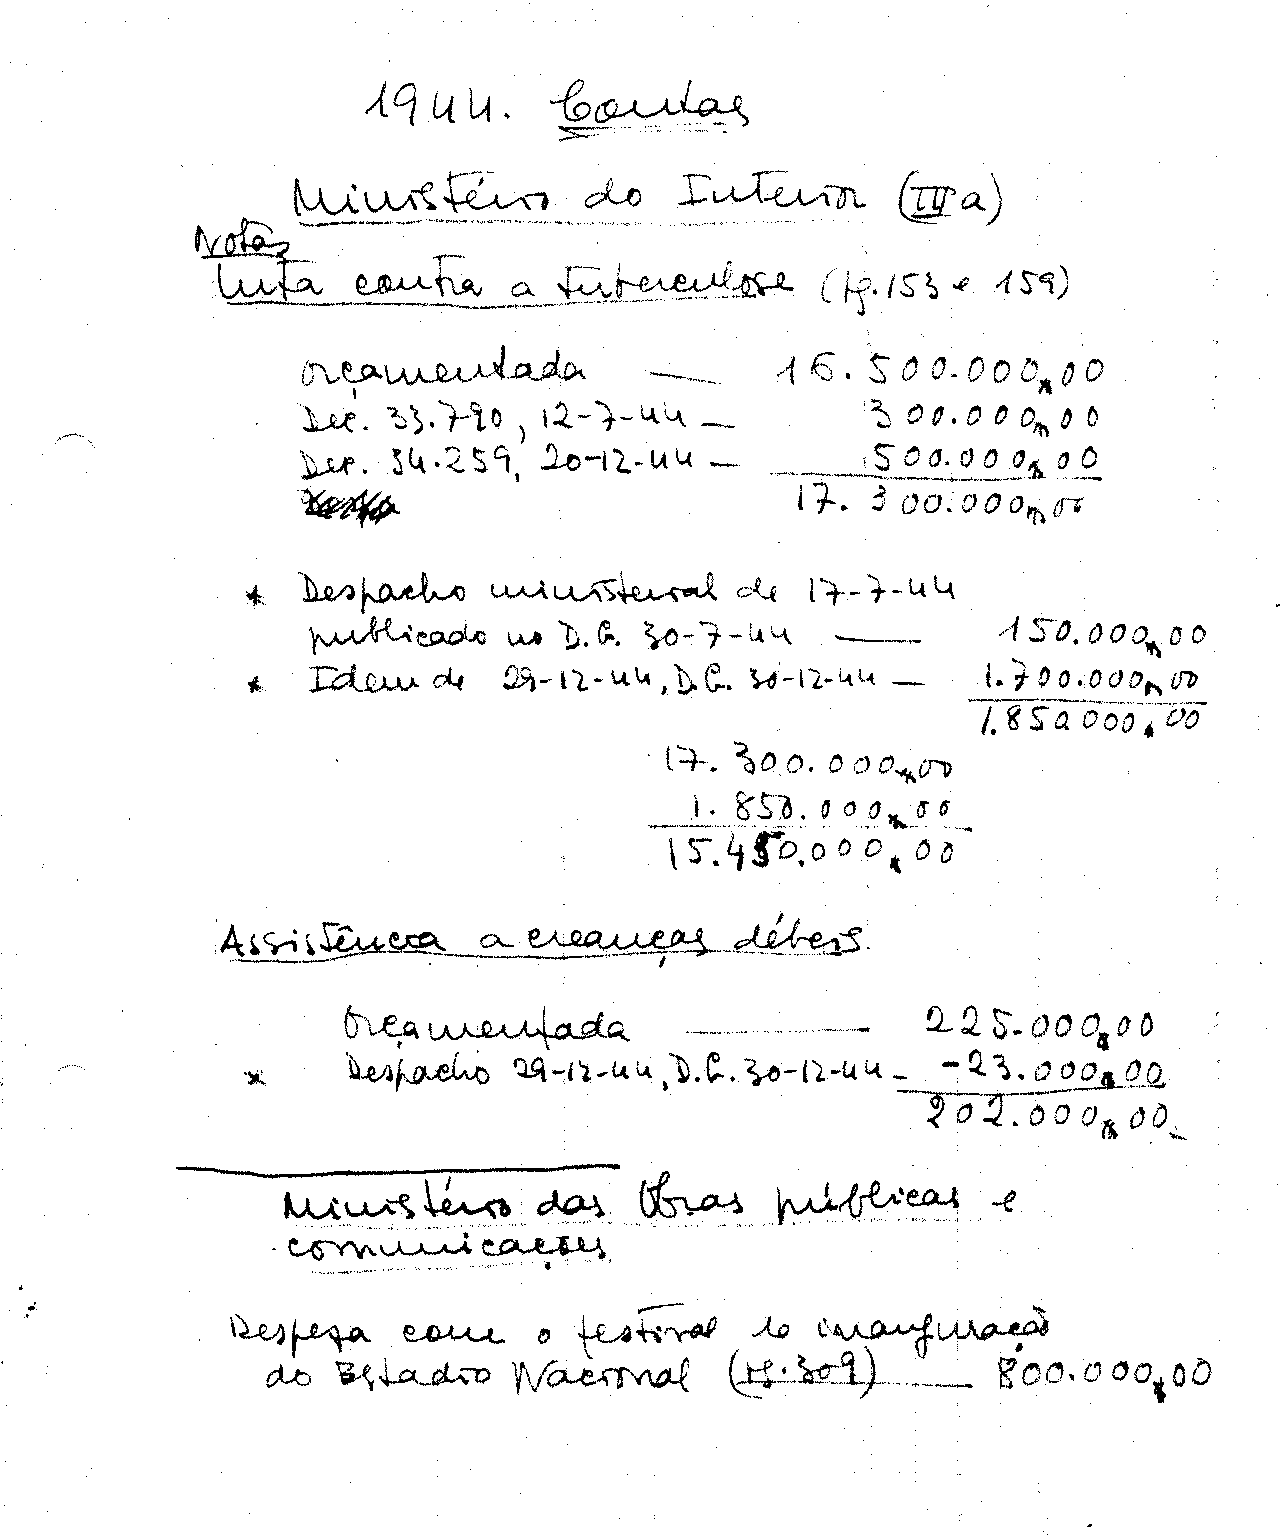 1944. Contas
Ministério do Interior (IIIa)
Notas
Luta contra a tuberculose (pg. 153 e 159)
Orçamentada — 16.500.000,00
Dec. 33.790, 12-7-44 — 300.000,00
Dec. 34.259, 20-12-44 — 500.000,00
17.300.000,00
* Despacho ministerial de 17-7-44
publicado no D.G. 30-7-44 — 150.000,00
* Idem de 29-12-44, D.G. 30-12-44 — 1.700.000,00
1.850.000,00
17.300.000,00
1.850.000,00
15.450.000,00
Assistência a creanças débeis
Orçamentada — 225.000,00
* Despacho 29-12-44, D.G. 30-12-44 - -23.000,00
202.000,00
Ministério das Obras públicas e
comunicações
Despeza com o festival inauguração
do Estadio Nacional (pg. 309) — 800.000,00